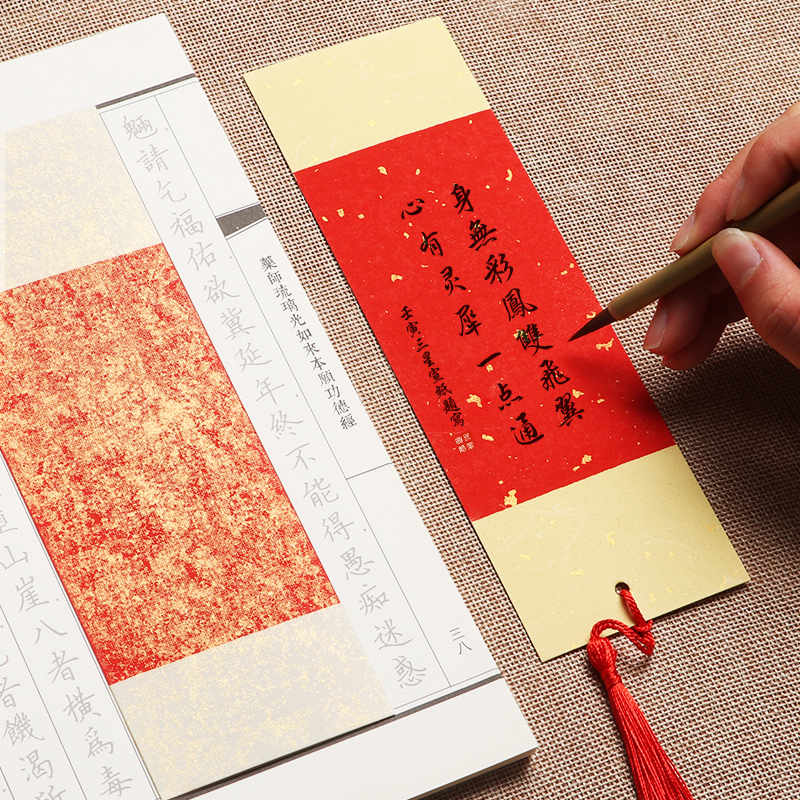 身無彩鳳雙飛翼
心有灵犀一点通
壬寅三星宣紙題寫
藥師琉璃光如來本願功德經
三八
魎請乞福佑欲冀延年終不能得愚痴迷惑
山崖八者橫為毒
者饑渴